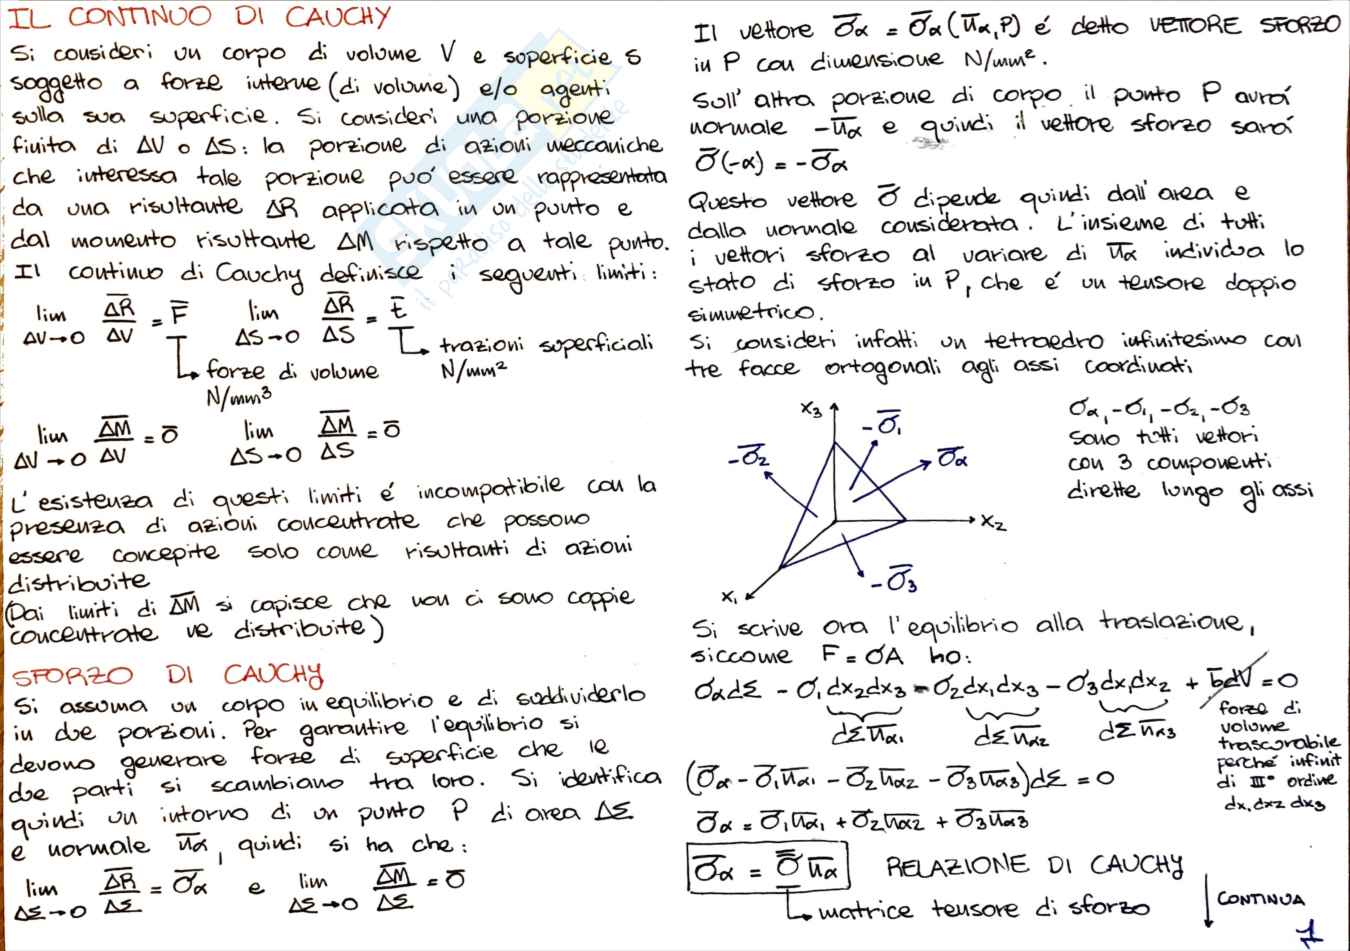 IL CONTINUO DI CAUCHY
Si consideri un corpo di volume V e superficie S
soggetto a forze interne (di volume) e/o agenti
sulla sua superficie. Si consideri una porzione
finita di ΔV o ΔS: la porzione di azioni meccaniche
che interessa tale porzione puó essere rappresentata
da una risultante ΔR applicata in un punto e
dal momento risultante ΔM rispetto a tale punto.
Il continuo di Cauchy definisce i seguenti limiti:
lim ΔV→0 ΔR̅/ΔV = F̅ lim ΔS→0 ΔR̅/ΔS = t̅
forze di volume
N/mm³
trazioni superficiali
N/mm²
lim ΔV→0 ΔM̅/ΔV = 0̅ lim ΔS→0 ΔM̅/ΔS = 0̅
L'esistenza di questi limiti é incompatibile con la
presenza di azioni concentrate che possono
essere concepite solo come risultanti di azioni
distribuite
(Dai limiti di ΔM̅ si capisce che non ci sono coppie
concentrate ne distribuite)
SFORZO DI CAUCHY
Si assuma un corpo in equilibrio e di suddividerlo
in due porzioni. Per garantire l'equilibrio si
devono generare forze di superficie che le
due parti si scambiano tra loro. Si identifica
quindi un intorno di un punto P di area ΔΣ
e normale n̅α, quindi si ha che:
lim ΔΣ→0 ΔR̅/ΔΣ = σ̅α e lim ΔΣ→0 ΔM̅/ΔΣ = 0̅
Il vettore σ̅α = σ̅α(n̅α,P) é detto VETTORE SFORZO
in P con dimensione N/mm².
Sull'altra porzione di corpo il punto P avrá
normale -n̅α e quindi il vettore sforzo sará
σ̅(-α) = -σ̅α
Questo vettore σ̅ dipende quindi dall'area e
dalla normale considerata. L'insieme di tutti
i vettori sforzo al variare di n̅α individua lo
stato di sforzo in P, che é un tensore doppio
simmetrico.
Si consideri infatti un tetraedro infinitesimo con
tre facce ortogonali agli assi coordinati
x₃
-σ̅₁
-σ̅₂
σ̅α
x₂
-σ̅₃
x₁
σα, -σ₁, -σ₂, -σ₃
sono tutti vettori
con 3 componenti
dirette lungo gli assi
Si scrive ora l'equilibrio alla traslazione,
siccome F = σA ho:
σαdΣ - σ₁dx₂dx₃ - σ₂dx₁dx₃ - σ₃dx₁dx₂ + b̅dV = 0
dΣn̅α₁ dΣn̅α₂ dΣn̅α₃
forze di
volume
trascurabile
perché infinit
di III° ordine
dx₁dx₂dx₃
(σ̅α - σ̅₁n̅α₁ - σ̅₂n̅α₂ - σ̅₃n̅α₃)dΣ = 0
σ̅α = σ̅₁n̅α₁ + σ̅₂n̅α₂ + σ̅₃n̅α₃
σ̅α = σ̿ n̅α RELAZIONE DI CAUCHY
matrice tensore di sforzo
CONTINUA
1